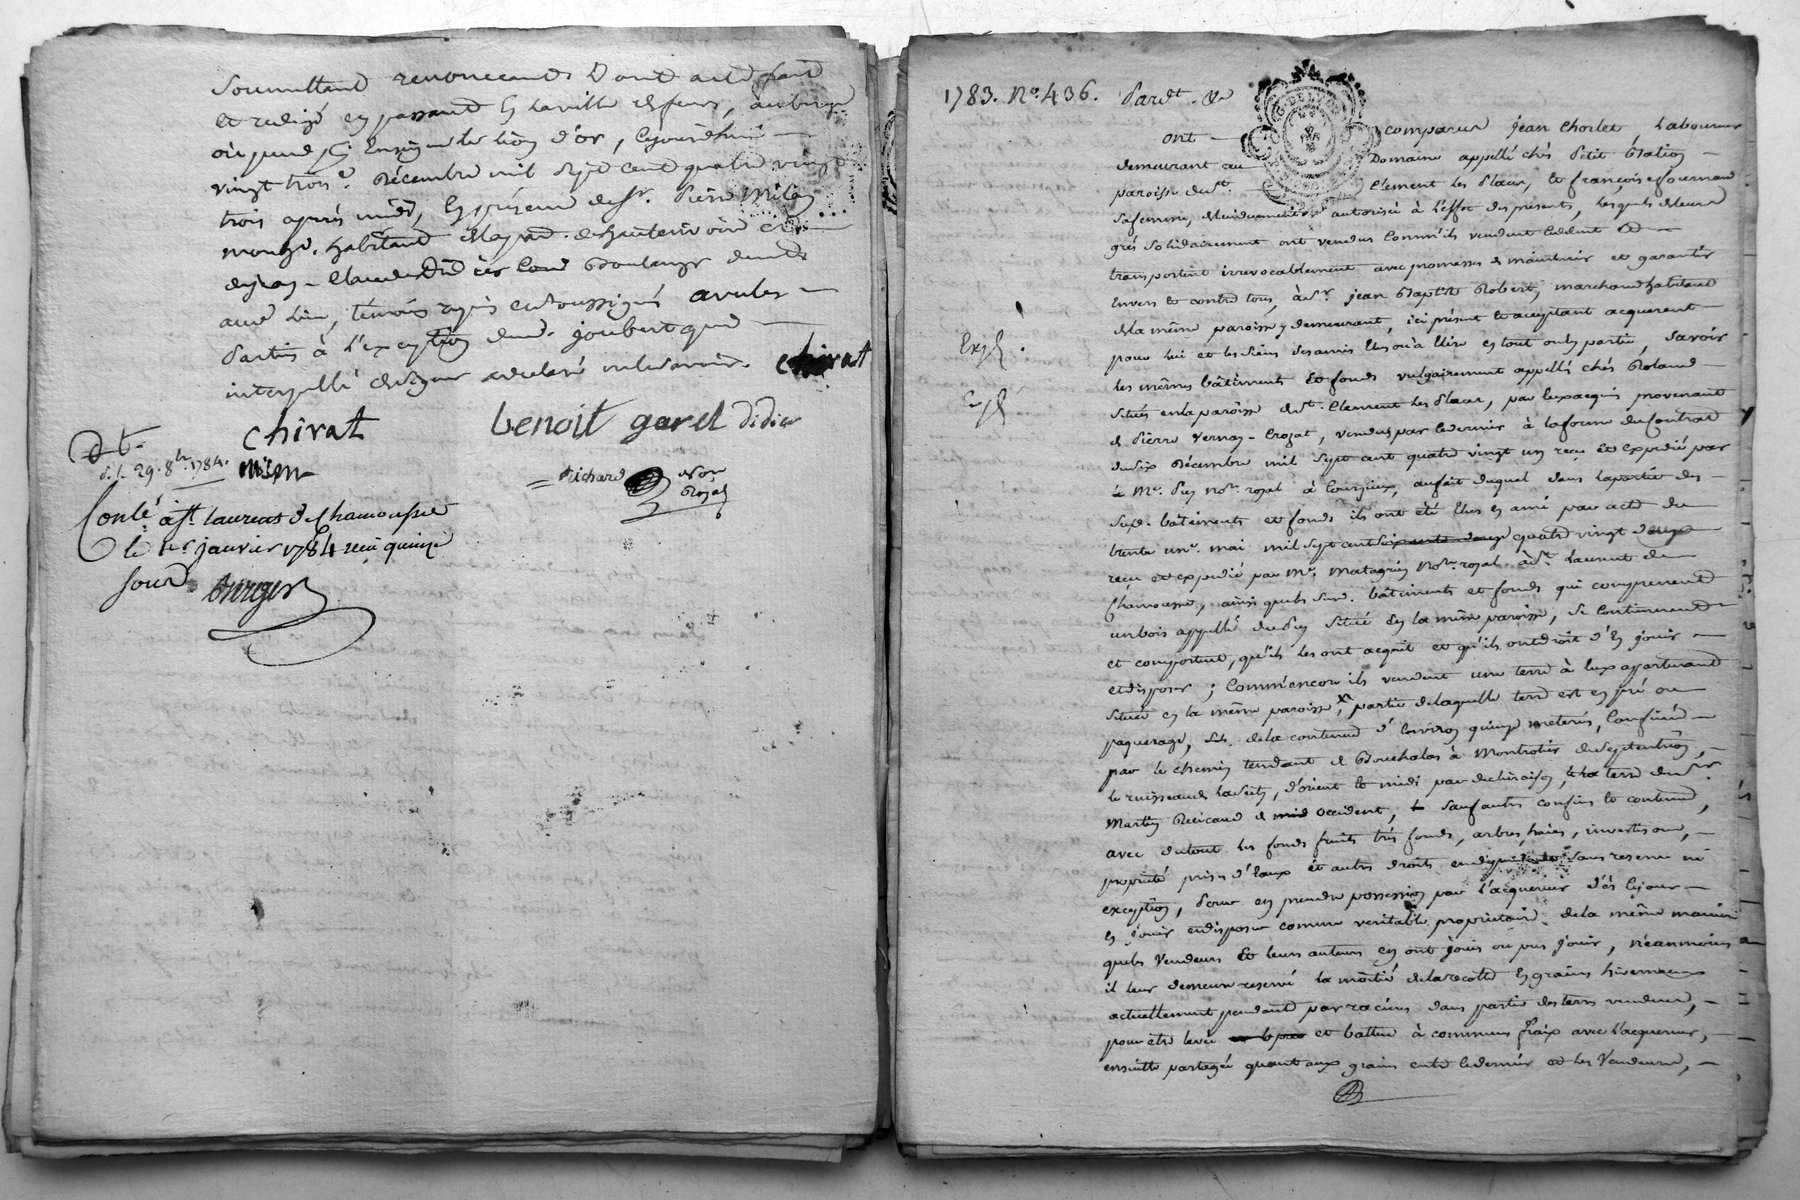 Soumettant renonceant Dont acte fait
et redigé en passant en la ville de feurs, auberge
où pend pr. Enseigne le lion d'or, cejourdhui
vingt trois e. Décembre mil sept cent quatre vingt
trois après midi, en présence de Sr. Pierre
habitant de la par. de hauterivoire et
Claude Boulanger
lieu, témoins requis et soussignés avec les
Parties à l'exception dud. joubert qui
interpellé de signer a declaré ne le savoir. chirat
chirat
benoit garel didier
Richard Nore Royal
d. l. 29. 8bre. 1784.
Conlé. à St. laurent de Chamousset
le 1er janvier 1784 reçu quinze
sous
berger
1783. No. 436. Pardt. &e
ont comparu jean Chorlet, Laboureur
demeurant au Domaine appellé chés Petit
paroisse de St. Clement les Places, et françoise fournand
sa femme, de lui duement autorisée à l'effet des présents, lesquels de leur
grés solidairement ont vendus comm'ils vendent cedent et
transportent irrevocablement avec promesses de maintenir et garantir
Envers et contre tous, à Sr. jean Baptte Robert, marchand habitant
de la même paroisse y demeurant, ici présent et acceptant acquereur
pour lui et les siens ses amis Elus ou à Elire en tout ou en partie, Savoir
Exp.
les mêmes bâtiments et fonds vulgairement appellé chés Roland
situés en la paroisse de St. Clement les Places, par eux acquis provenant
de Pierre Vernay-Crozat, vendus par ce dernier à la forme du Contrat
du six Décembre mil sept cent quatre vingt un reçu et expedié par
Me. Puy Nore. royal à Courzieux, au fait duquel dans la partie des
susd. bâtiments et fonds ils ont été Elus en ami par acte du
trente une. mai mil sept cent soixante deux quatre vingt deux
reçu et expedié par Me. Matagrin Nore. royal à St. Laurent de
Chamousset, ainsi que les susd. bâtiments et fonds qui comprennent
un bois appellé du Puy situé en la même paroisse, se contiennent
et comportent, qu'ils les ont acquit et qu'ils ont droit d'en jouir
et disposer; Comm'encore ils vendent une terre à eux appartenant
située en la même paroisse, partie de laquelle terre est en pré ou
paquerage, de la contenue d'Environ quinze meterés, Confinée
par le chemin tendant de Bouchalas à Montrotier du septentrion,
le ruisseau de la d'orient et midi par déclinaison, et la terre du Sr.
Martin Recicaud de mid occident, sauf autres confins et contenue,
avec du tout les fonds fruits très fonds, arbres, haies, investison,
proprieté prises d'Eaux et autres droits en dépendants sans reserve ni
exception, pour en prendre possession par l'acquereur d'ès cejour
en jouir en disposer comme veritable propriétaire de la même maniere
que les Vendeurs et leurs auteurs en ont jouis ou pus jouir, néanmoins
il leur demeure reservé la moitié de la recolte en grains hivernaux
actuellement pendant par racines dans partie des terres vendues,
pour etre levée et battue à communs fraix avec l'acquereur,
ensuitte partagée quant aux grains entre le dernier et les Vendeurs,